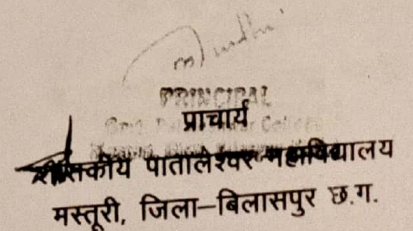 PRINCIPAL
प्राचार्य
शासकीय पातालेश्वर महाविद्यालय
मस्तूरी, जिला–बिलासपुर छ.ग.